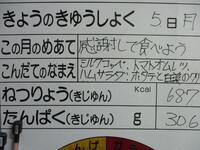 きょうのきゅうしょく 5日月
この月のめあて 感謝して食べよう
こんだてのなまえ ミルクコッペ・トマトオムレツ
ハムサラダ・ホタテと白菜のクリ
ねつりょう(きじゅん) Kcal 687
たんぱく(きじゅん) g 30.6